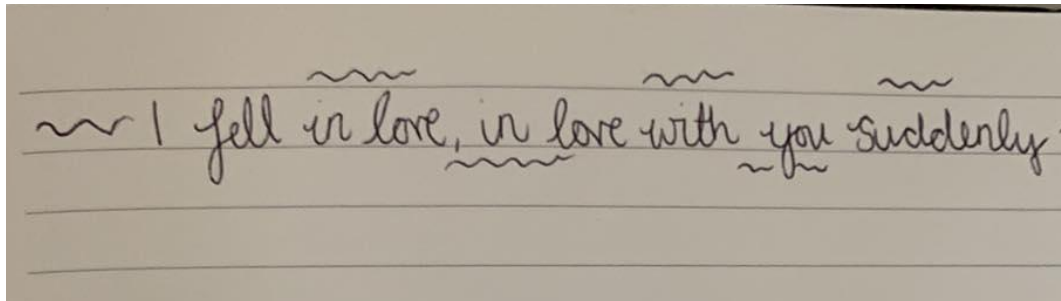 ~ I fell in love, in love with you suddenly